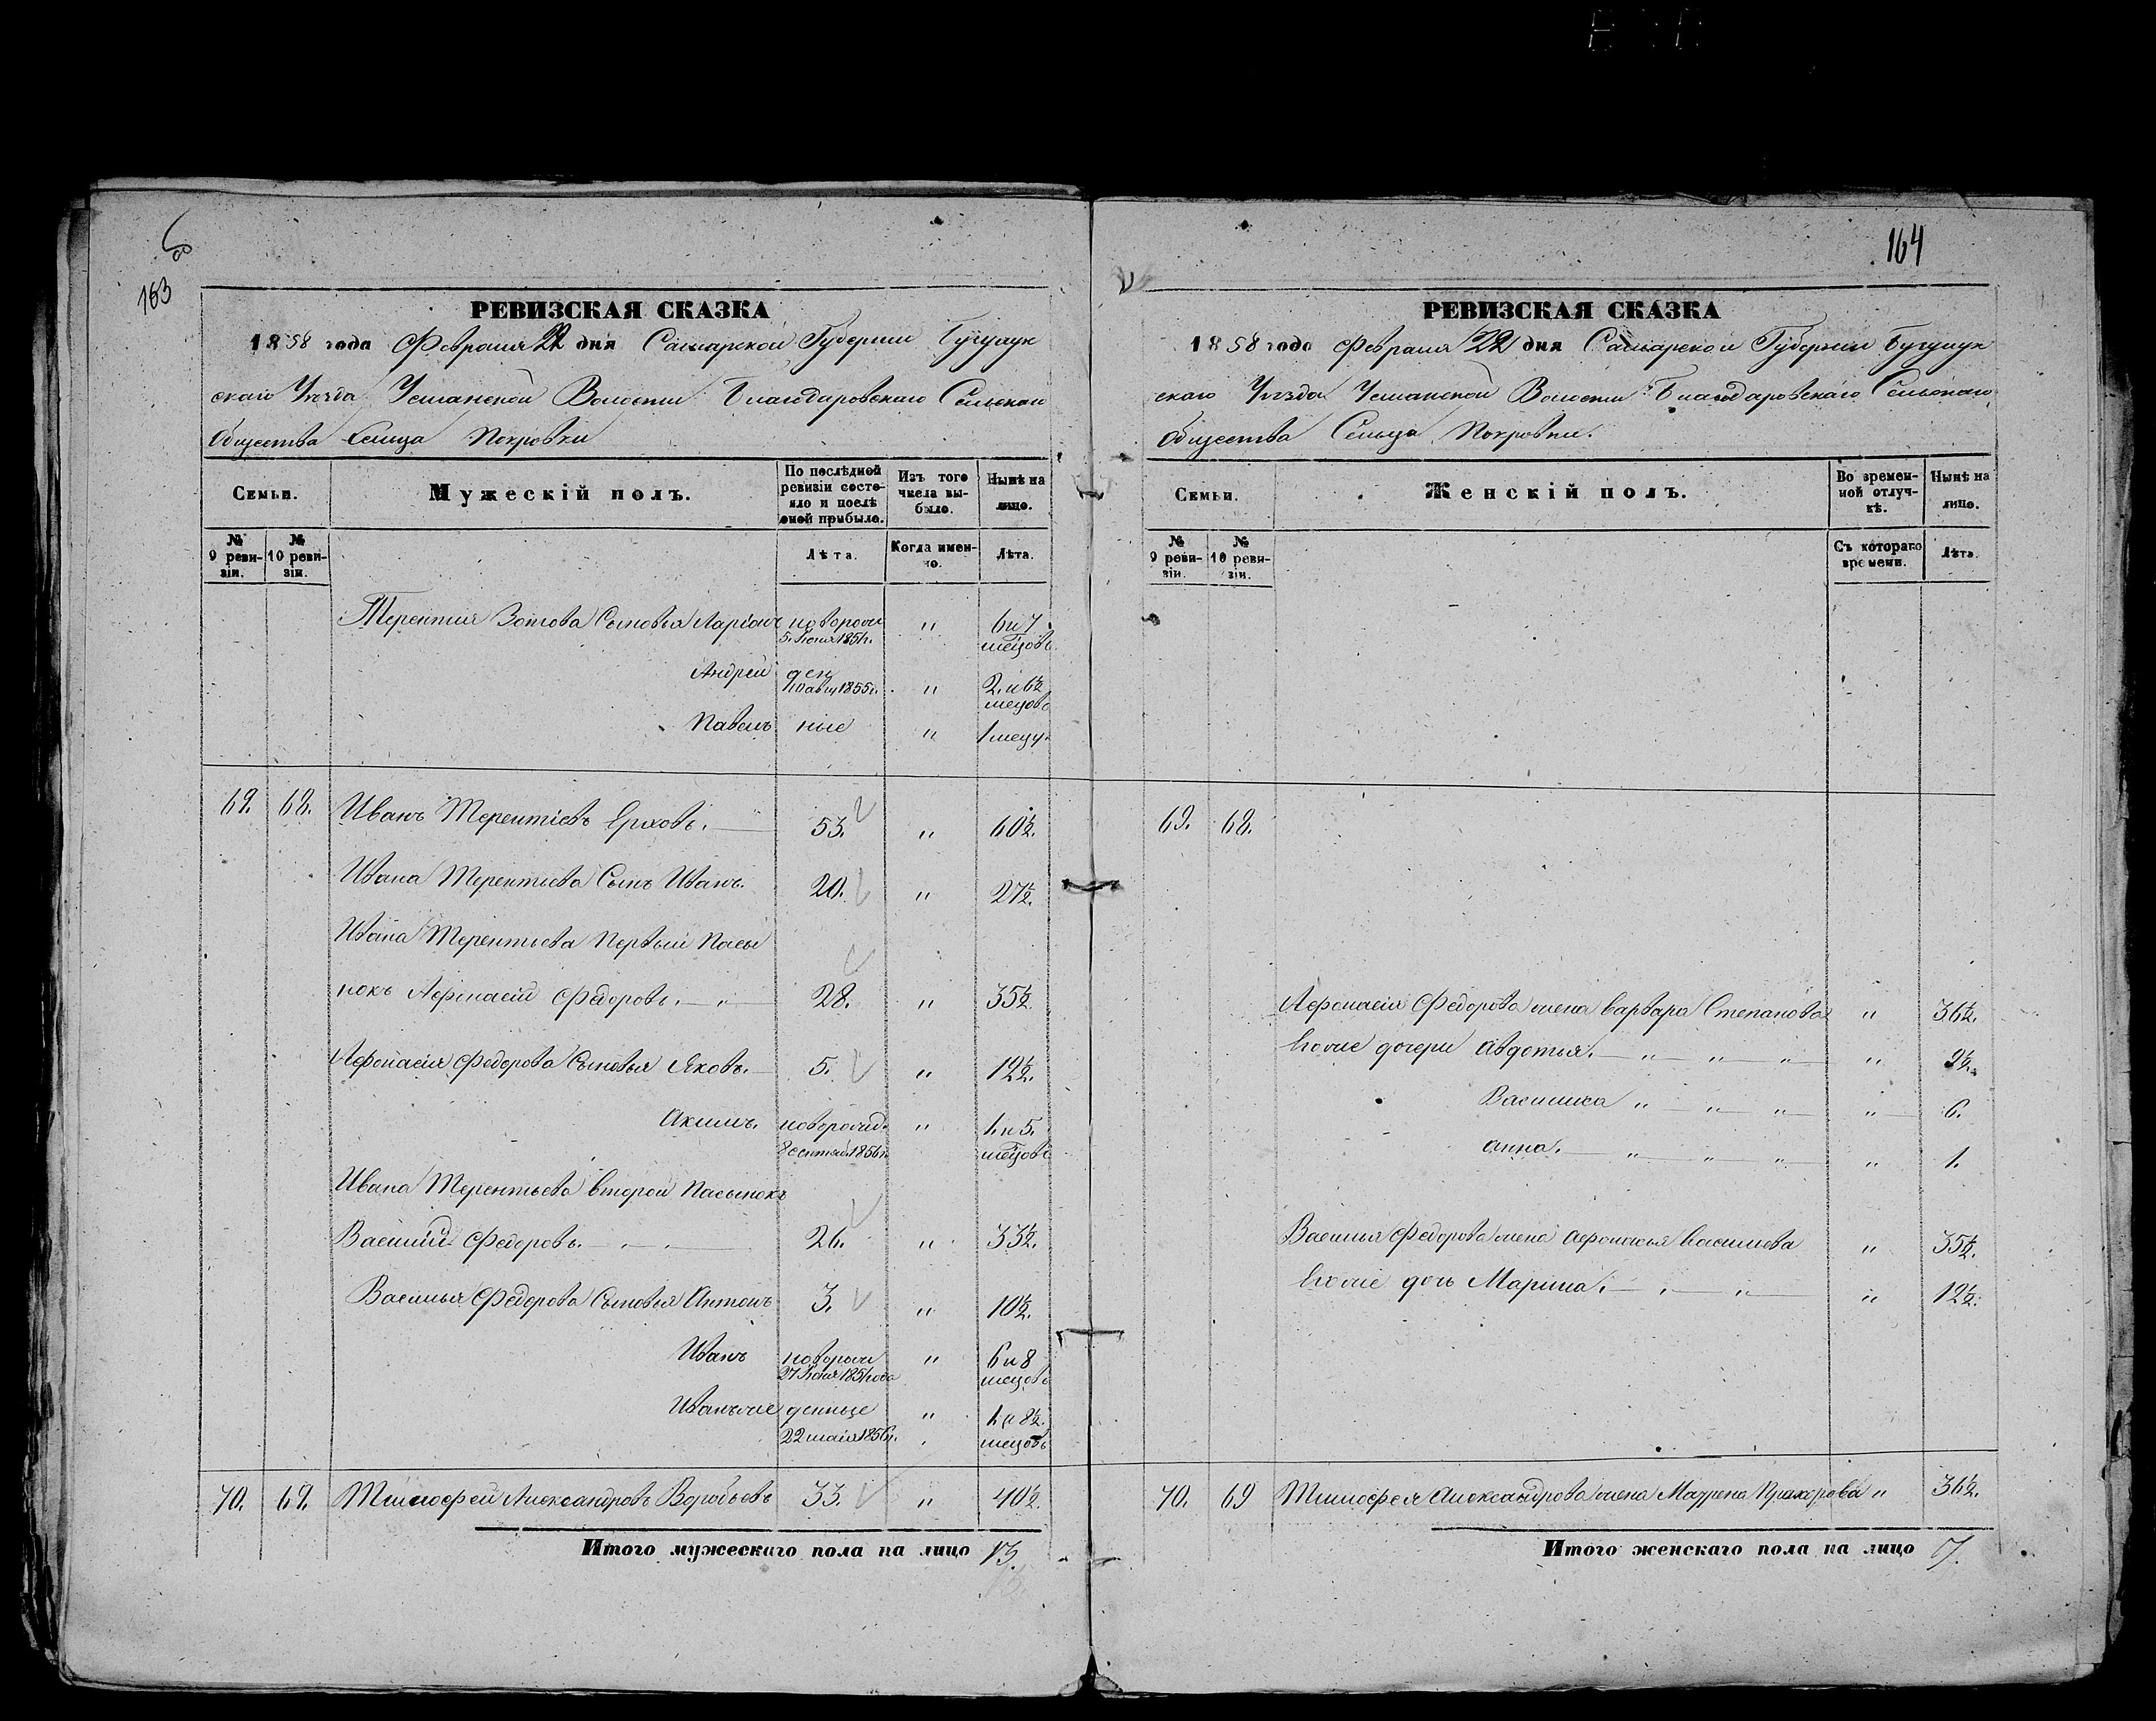 163
164
РЕВИЗСКАЯ СКАЗКА
1858 года Февраля 22 дня Самарской Губернии Бузулук
скаго Уезда Усманской Волости Благодаровскаго Сельскаго
Общества Сельца Покровки
Семьи.
Мужескій полъ.
По послѣдной ревизіи состояло и послѣ оной прибыло.
Изъ того числа выбыло.
Нынѣ на лицо.
№ 9 ревизіи.
№ 10 ревизіи.
Лѣта.
Когда именно.
Лѣта.
Терентия Зотова Сыновья Ларіонъ новорож " 6 и 7
5 Июня 1851 г. месцовъ
Андрей ден " 2. и 6½
10 авгу 1855 г. месцовъ
Павелъ ные " 1 месцу
69. 68. Иванъ Терентіевъ 53. " 60½.
Ивана Терентьева Сынъ Иванъ. 20. " 27½.
Ивана Терентьева Первый Пасы
нокъ Афонасій Федоровъ. " 28. " 35½
Афонасія Федорова Сыновья Яковъ. 5. " 12½.
Акимъ. новорожд. " 1. и 5.
8 сентяб 1856 г. месцовъ
Ивана Терентьева второй Пасынокъ
Василий Федоровъ. 26. " 33½.
Василья Федорова Сыновья Антонъ 3. " 10½.
Иванъ новорож " 6 и 8
27 Июня 1851 года месцовъ
Иванъ же денные " 1. и 8½.
22 мая 1856 г. месцовъ
70. 69. Тимофей Александровъ Воробьевъ 33. " 40½.
Итого мужескаго пола на лицо 13.
РЕВИЗСКАЯ СКАЗКА
1858 года Февраля 22 дня Самарской Губернии Бузулук
скаго Уезда Усманской Волости Благодаровскаго Сельскаго
Общества Сельца Покровки.
Семьи.
Женскій полъ.
Во временной отлучкѣ.
Нынѣ на лицо.
№ 9 ревизіи.
№ 10 ревизіи.
Съ котораго времени.
Лѣта.
69. 68.
Афонасія Федорова жена Варвара Степанова " 36½.
Ихъ же дочери Авдотья. " " " " 9½.
Василиса " " " " 6.
Анна. " " " " 1.
Василья Федорова жена Афонасья Васильева " 35½.
Ихъ же дочь Марина. " " " 12½.
70. 69 Тимофея Александрова жена Маврена Прохорова " 36½.
Итого женскаго пола на лицо 7.